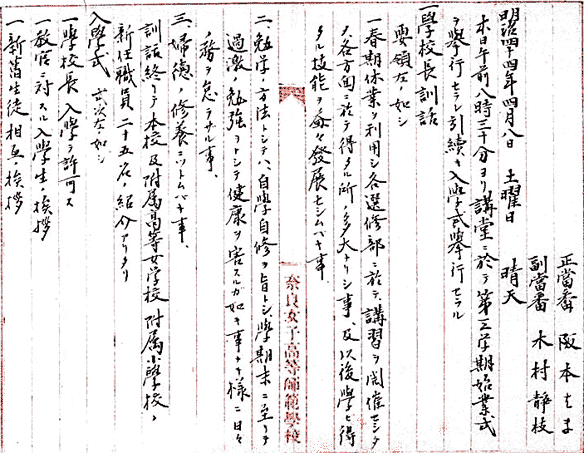 正當番 阪本ちよ
副當番 木村靜枝
明治四十四年四月八日 土曜日 晴天
本日午前八時三十分ヨリ講堂ニ於テ第三学期始業式
ヲ擧行セラレ引續キ入學式擧行セラル
一學校長訓話
要領左ノ如シ
一春期休業ヲ利用シ各選修部ニ於テ講習ヲ開催セシタ
メ各方面ニ於テ得タル所ノ多大ナリシ事、及以後學ビ得
タル技能ヲ益々發展セシムベキ事
二、勉学ノ方法トシテハ、自學自修ヲ旨トシ學期末ニ至リテ
過激ノ勉強ヲナシテ健康ヲ害スルガ如キ事ナキ様ニ日々ノ
務ヲ怠ラザル事、
三、婦德ノ修養ニツトムベキ事、
訓話終リテ本校及附属高等女学校、附属小學校ノ
新任職員二十五名ノ紹介アリタリ
入學式 式次左ノ如シ
一學校長入學ヲ許可ス
一教官ニ対スル入學生ノ挨拶
一新舊生徒相互ノ挨拶
奈良女子高等師範學校